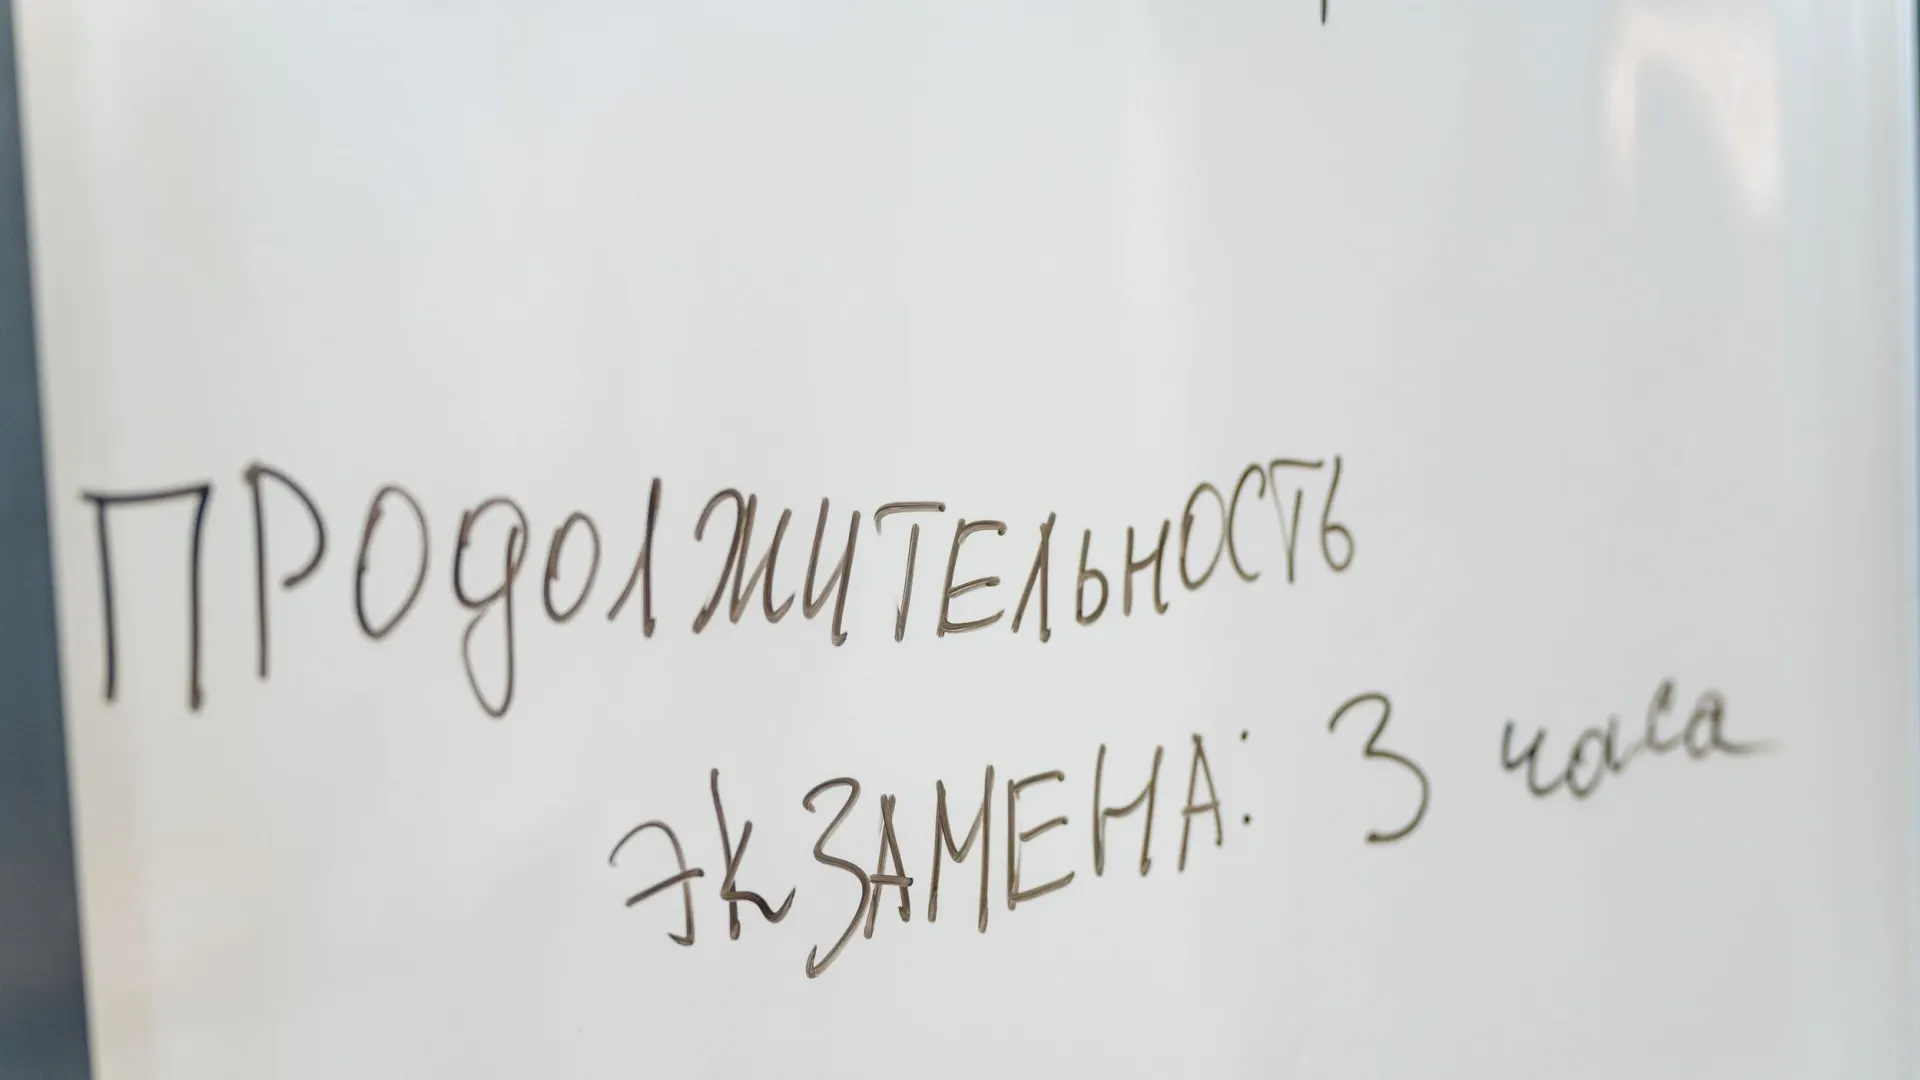 ПРОДОЛЖИТЕЛЬНОСТЬ
ЭКЗАМЕНА: 3 часа